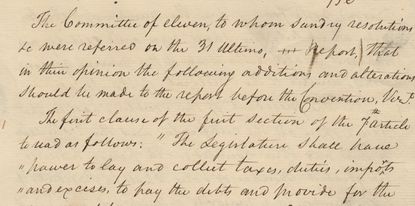 The Committee of eleven, to whom sundry resolutions
&c were referred on the 31 Ultimo, Report, that
in their opinion the following additions and alterations
should be made to the report before the Convention, Vizt
The first clause of the first section of the 7th article
to read as follows: "The Legislature shall have
" power to lay and collect taxes, duties, imposts
" and excises, to pay the debts and provide for the